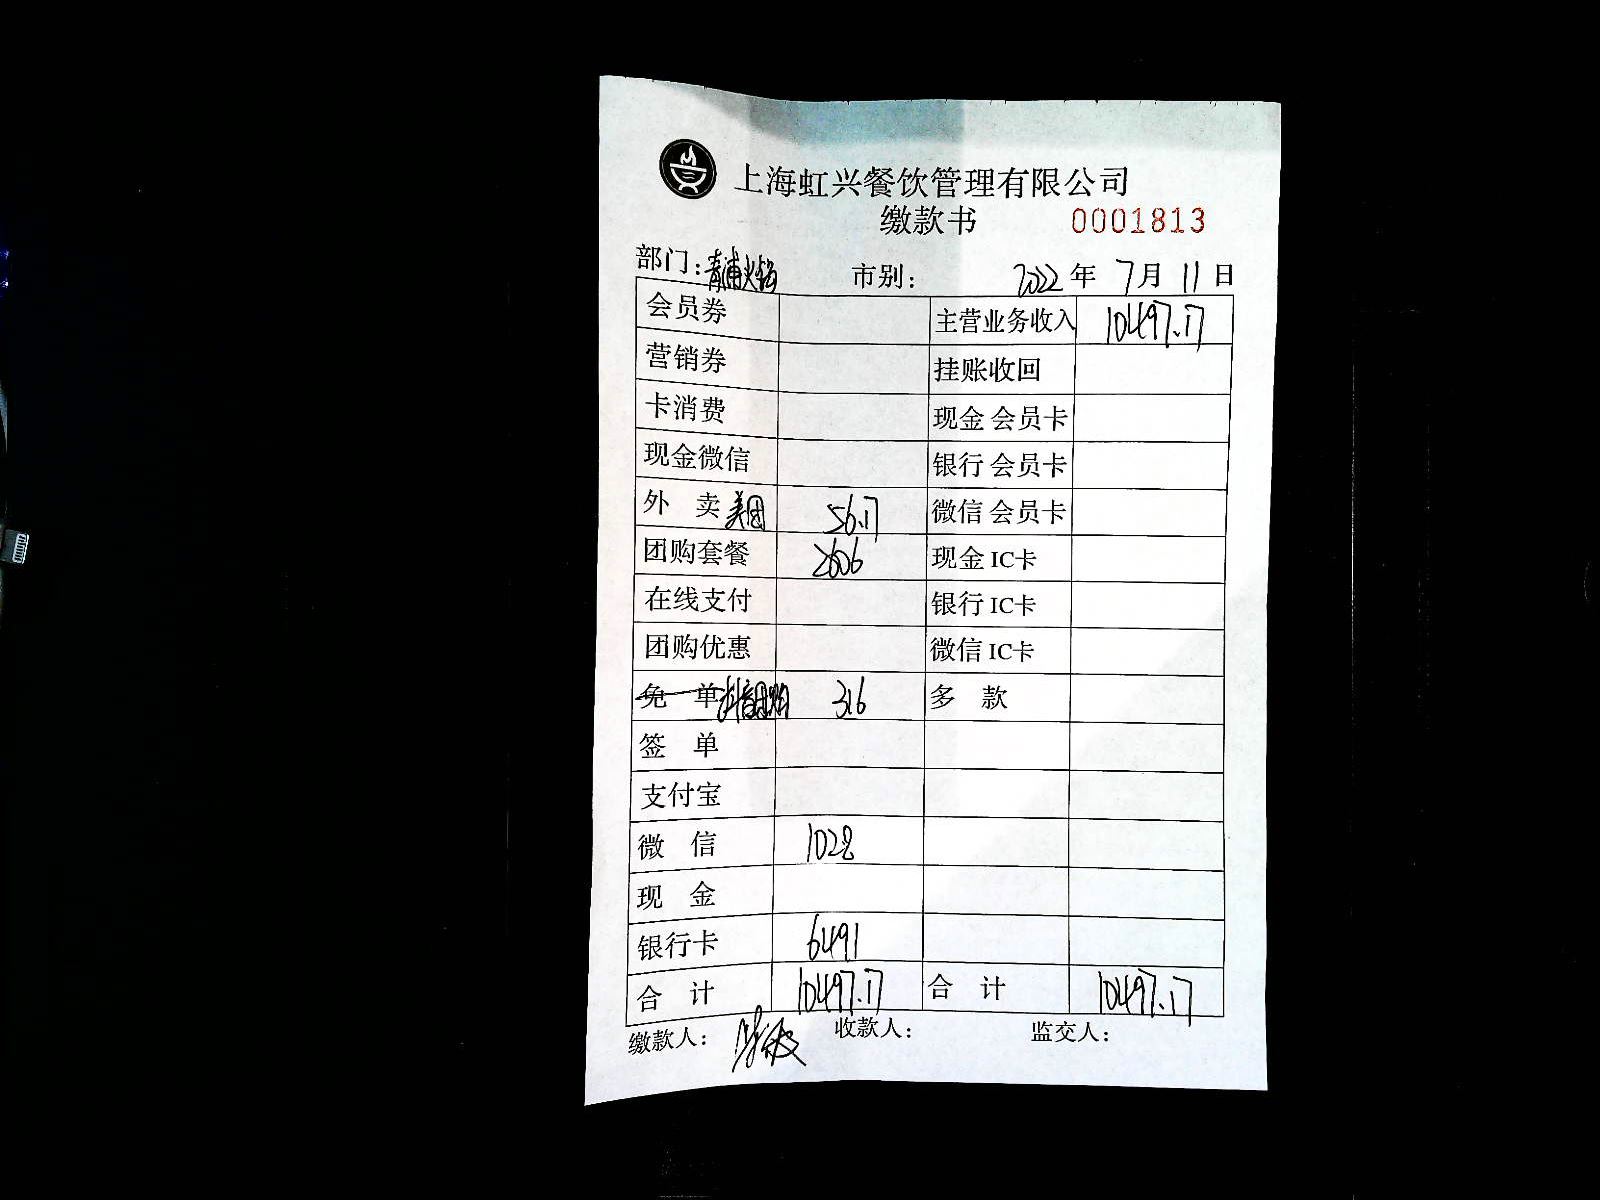 上海虹兴餐饮管理有限公司
缴款书 0001813
部门：青浦火锅 市别： 2022 年 7 月 11 日
会员券 主营业务收入 10497.17
营销券 挂账收回
卡消费 现金 会员卡
现金微信 银行 会员卡
外 卖 美团 56.17 微信 会员卡
团购套餐 2606 现金 IC卡
在线支付 银行 IC卡
团购优惠 微信 IC卡
免 单 抖音团购 316 多 款
签 单
支付宝
微 信 1028
现 金
银行卡 6491
合 计 10497.17 合 计 10497.17
缴款人： 收款人： 监交人：